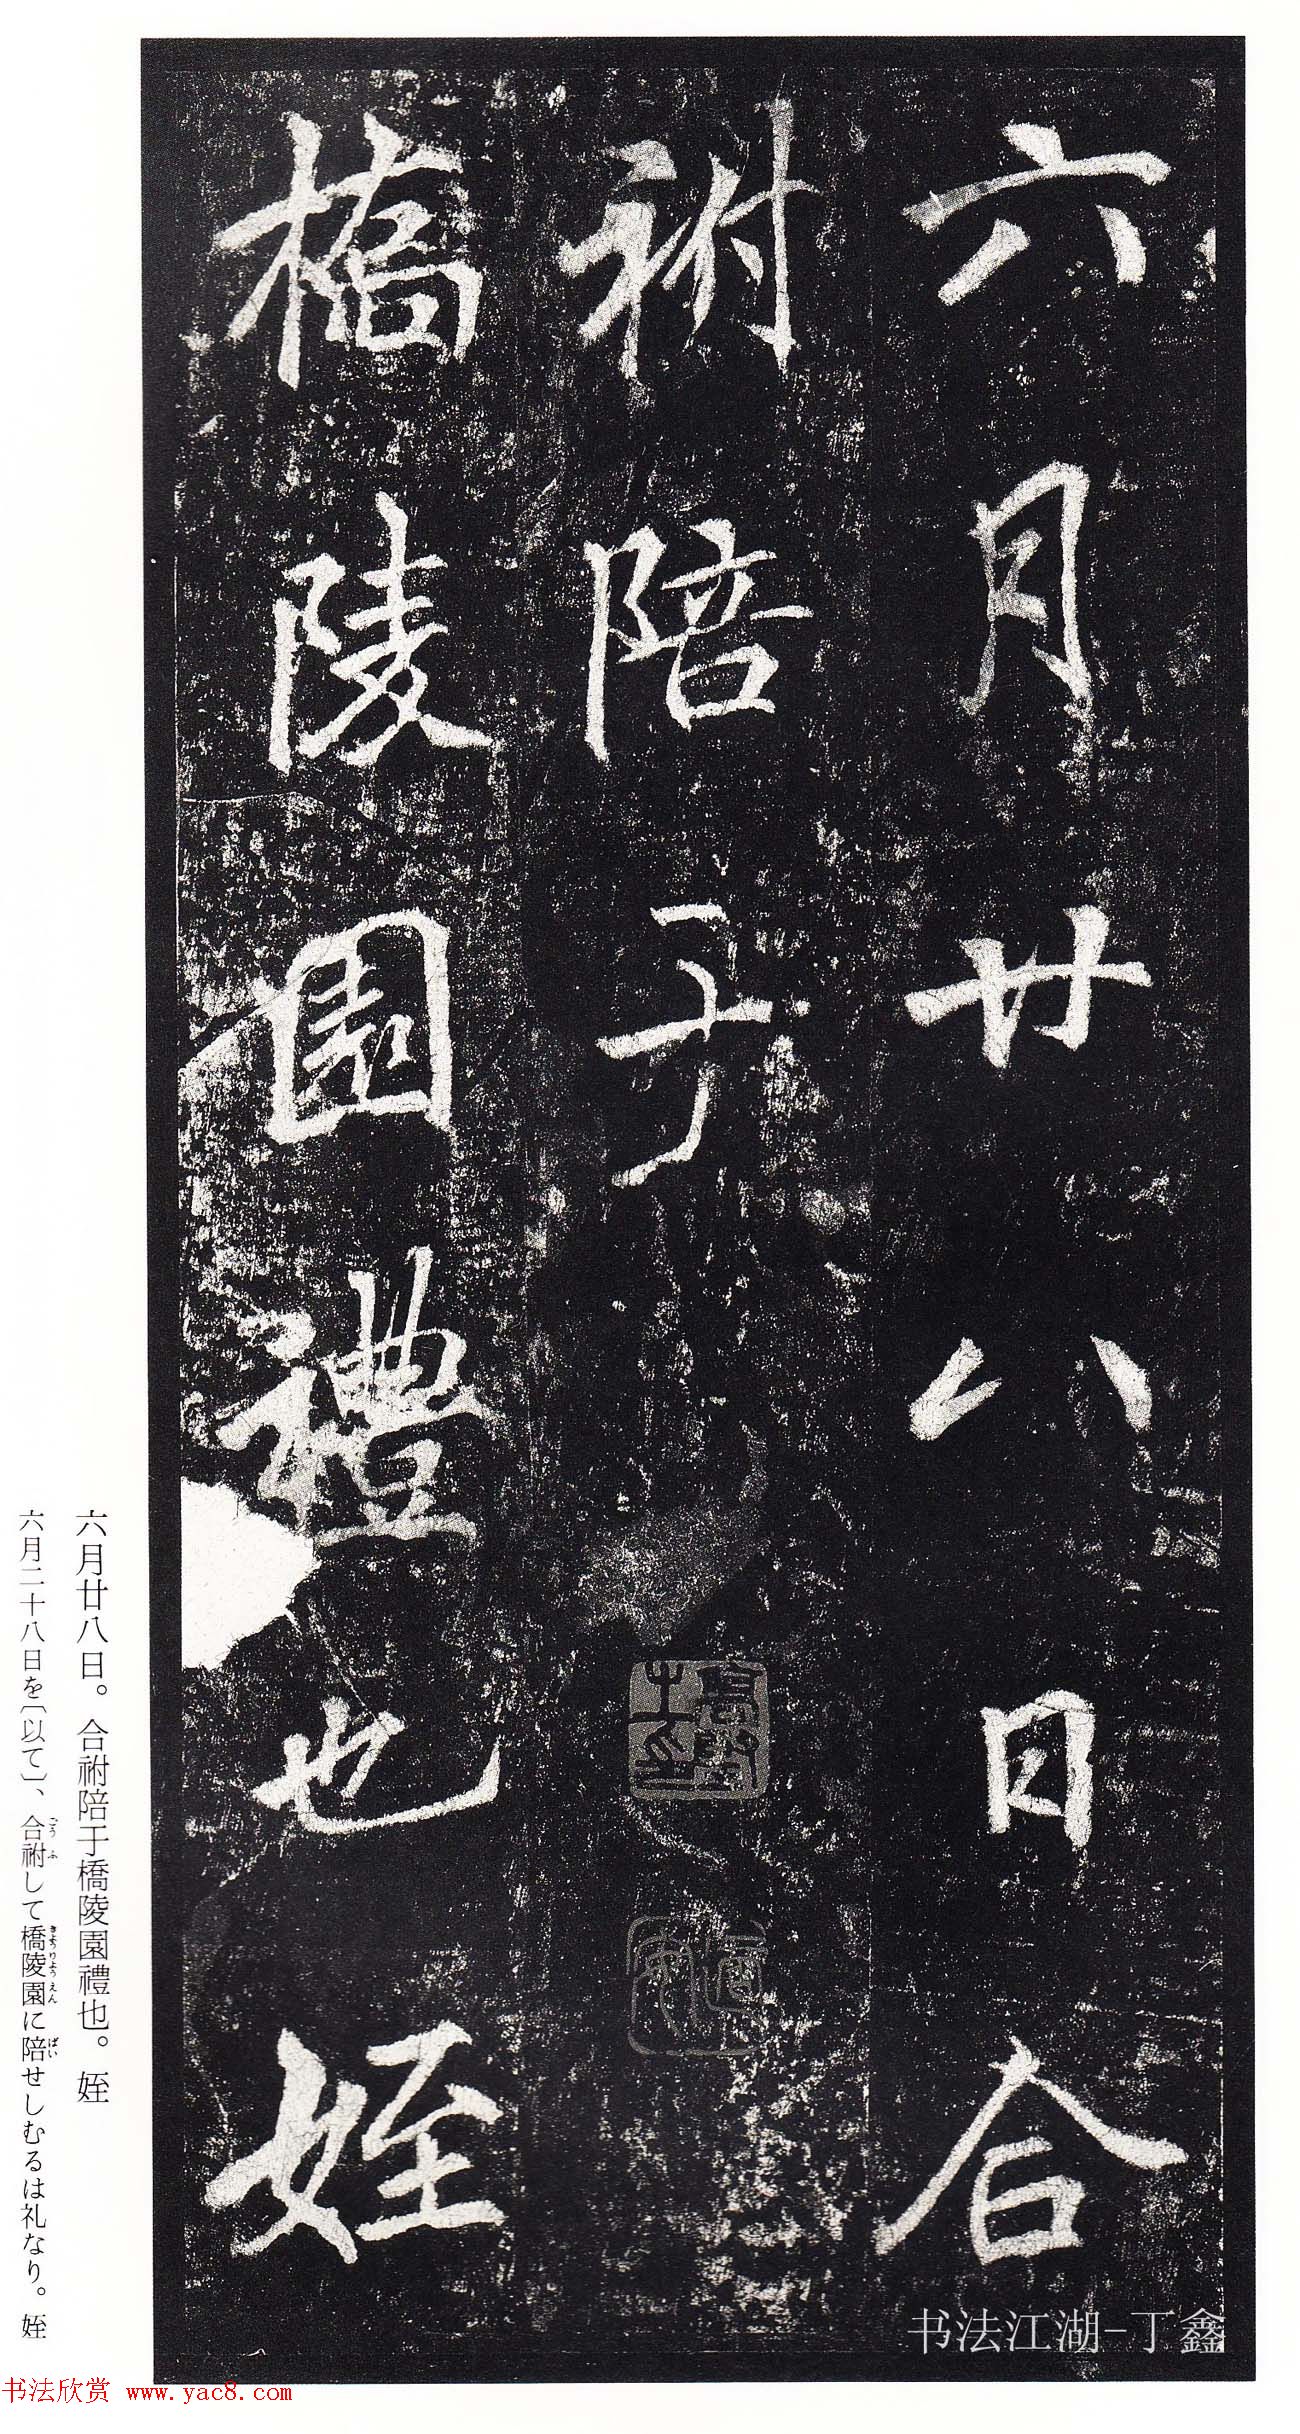 六月廿八日合
祔陪于
橋陵園禮也姪
六月廿八日。合祔陪于橋陵園禮也。姪
六月二十八日を〔以て〕、合祔して橋陵園に陪せしむるは礼なり。姪
ごうふ
きょうりょうえん
ばい
书法江湖-丁鑫
书法欣赏 www.yac8.com